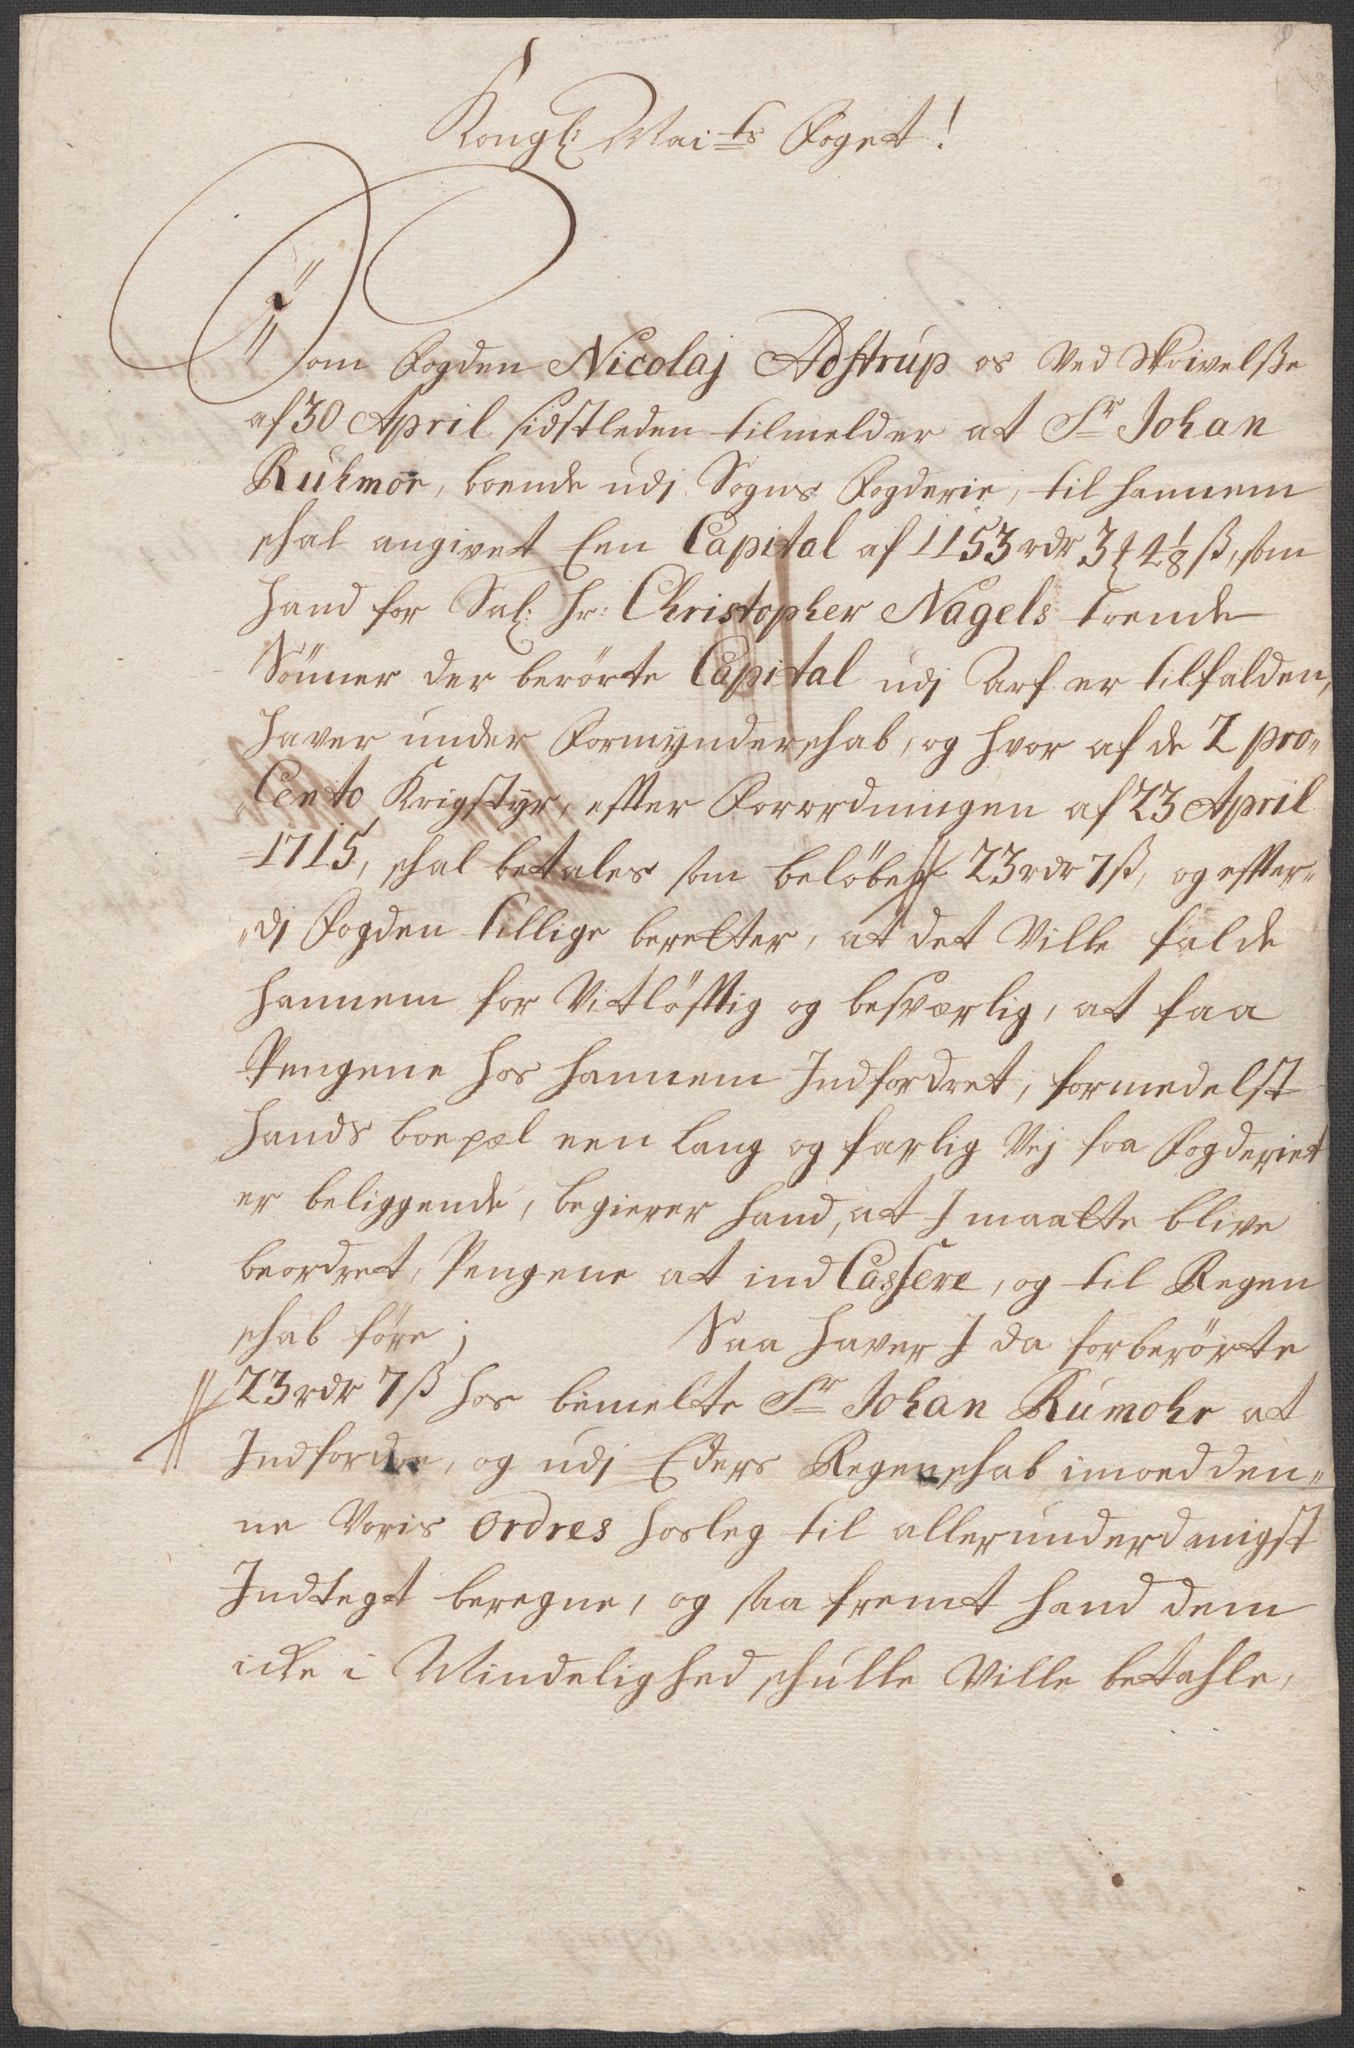 Kongl: Mai<sup>ts</sup> Foget!
Som Fogden Nicolaj Adstrup os Ved Skrivelße
af 30 April sidstleden tilmelder at S<sup>r</sup> Johan
Ruhmor, boende udj Sogns Fogderie, til hannem
schal angivet Een Capital af 1153 rdr 3 ₰ 4⅛ ß, som
hand for Sal: Hr: Christopher Nagels trende
Sönner der berörte Capital udj Arf er tilfalden,
haver under Formynderschab, og hvor af de 2 pro„
„Cento Krigstyr, efter Forordningen af 23 April
1715, schal betales som belöber 23 rdr 7 ß, og efter„
„dj Fogden tillige beretter, at det Ville falde
hannem for Vitlöfttig og besværlig, at faa
Pengene hos hannem Indfordret, formedelst
hands boepæl een lang og farlig Vej fra Fogderiet
er beliggende, begierer hand, at I maatte blive
beordret, Pengene at ind Cassere, og til Regen
schab före; Saa haver I da forberörte
23 rdr 7 ß hos bemelte S<sup>r</sup> Johan Rumohr at
Indfordre, og udj Eders Regenschab imoed den„
ne Voris Ordres hosleg til allerunderdanigst
Indtegt beregne, og saa fremt hand dem
icke i Mindelighed schulle Ville betahle,